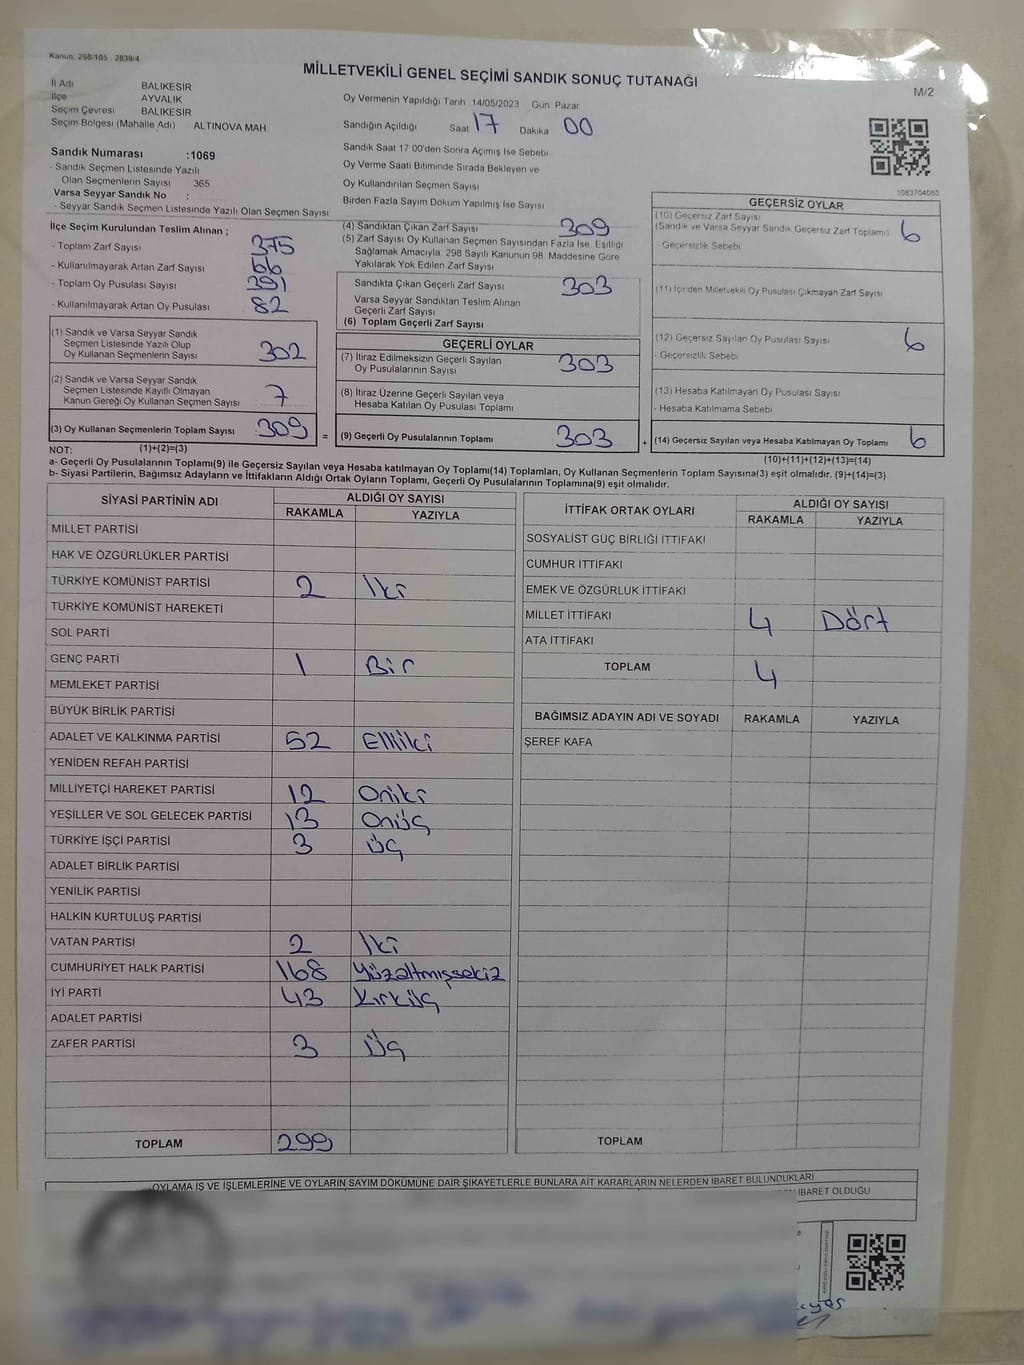 Kanun, 298/105 , 2839/4
MİLLETVEKİLİ GENEL SEÇİMİ SANDIK SONUÇ TUTANAĞI
M/2
İl Adı BALIKESİR
İlçe AYVALIK
Seçim Çevresi BALIKESİR
Seçim Bölgesi (Mahalle Adı) ALTINOVA MAH
Oy Vermenin Yapıldığı Tarih 14/05/2023 Gün Pazar
Sandığın Açıldığı Saat 17 Dakika 00
Sandık Saat 17 00'den Sonra Açımış İse Sebebi
Oy Verme Saati Bitiminde Sırada Bekleyen ve
Oy Kullandırılan Seçmen Sayısı
Birden Fazla Sayım Döküm Yapılmış İse Sayısı
Sandık Numarası :1069
- Sandık Seçmen Listesinde Yazılı
Olan Seçmenlerin Sayısı 365
Varsa Seyyar Sandık No :
- Seyyar Sandık Seçmen Listesinde Yazılı Olan Seçmen Sayısı
1083704060
İlçe Seçim Kurulundan Teslim Alınan ;
- Toplam Zarf Sayısı 375
- Kullanılmayarak Artan Zarf Sayısı 66
- Toplam Oy Pusulası Sayısı 391
- Kullanılmayarak Artan Oy Pusulası 82
(1) Sandık ve Varsa Seyyar Sandık
Seçmen Listesinde Yazılı Olup
Oy Kullanan Seçmenlerin Sayısı 302
(2) Sandık ve Varsa Seyyar Sandık
Seçmen Listesinde Kayıtlı Olmayan
Kanun Gereği Oy Kullanan Seçmen Sayısı 7
(3) Oy Kullanan Seçmenlerin Toplam Sayısı 309 =
(1)+(2)=(3)
(4) Sandıktan Çıkan Zarf Sayısı 309
(5) Zarf Sayısı Oy Kullanan Seçmen Sayısından Fazla İse, Eşitliği
Sağlamak Amacıyla, 298 Sayılı Kanunun 98. Maddesine Göre
Yakılarak Yok Edilen Zarf Sayısı
Sandıkta Çıkan Geçerli Zarf Sayısı 303
Varsa Seyyar Sandıktan Teslim Alınan
Geçerli Zarf Sayısı
(6) Toplam Geçerli Zarf Sayısı
GEÇERLİ OYLAR
(7) İtiraz Edilmeksizin Geçerli Sayılan
Oy Pusulalarının Sayısı 303
(8) İtiraz Üzerine Geçerli Sayılan veya
Hesaba Katılan Oy Pusulası Toplamı
(9) Geçerli Oy Pusulalarının Toplamı 303 +
GEÇERSİZ OYLAR
(10) Geçersiz Zarf Sayısı
(Sandık ve Varsa Seyyar Sandık Geçersiz Zarf Toplamı) 6
-Geçersizlik Sebebi
(11) İçinden Milletvekili Oy Pusulası Çıkmayan Zarf Sayısı
(12) Geçersiz Sayılan Oy Pusulası Sayısı 6
- Geçersizlik Sebebi
(13) Hesaba Katılmayan Oy Pusulası Sayısı
- Hesaba Katılmama Sebebi
(14) Geçersiz Sayılan veya Hesaba Katılmayan Oy Toplamı 6
(10)+(11)+(12)+(13)=(14)
NOT:
a- Geçerli Oy Pusulalarının Toplamı(9) ile Geçersiz Sayılan veya Hesaba katılmayan Oy Toplamı(14) Toplamları, Oy Kullanan Seçmenlerin Toplam Sayısına(3) eşit olmalıdır. (9)+(14)=(3)
b- Siyasi Partilerin, Bağımsız Adayların ve İttifakların Aldığı Ortak Oyların Toplamı, Geçerli Oy Pusulalarının Toplamına(9) eşit olmalıdır.
SİYASİ PARTİNİN ADI ALDIĞI OY SAYISI
RAKAMLA YAZIYLA
MİLLET PARTİSİ
HAK VE ÖZGÜRLÜKLER PARTİSİ
TÜRKİYE KOMÜNİST PARTİSİ 2 İki
TÜRKİYE KOMÜNİST HAREKETİ
SOL PARTİ
GENÇ PARTİ 1 Bir
MEMLEKET PARTİSİ
BÜYÜK BİRLİK PARTİSİ
ADALET VE KALKINMA PARTİSİ 52 Elliiki
YENİDEN REFAH PARTİSİ
MİLLİYETÇİ HAREKET PARTİSİ 12 Oniki
YEŞİLLER VE SOL GELECEK PARTİSİ 13 Onüç
TÜRKİYE İŞÇİ PARTİSİ 3 Üç
ADALET BİRLİK PARTİSİ
YENİLİK PARTİSİ
HALKIN KURTULUŞ PARTİSİ
VATAN PARTİSİ 2 İki
CUMHURİYET HALK PARTİSİ 168 Yüzaltmışsekiz
İYİ PARTİ 43 Kırküç
ADALET PARTİSİ
ZAFER PARTİSİ 3 Üç
TOPLAM 299
İTTİFAK ORTAK OYLARI ALDIĞI OY SAYISI
RAKAMLA YAZIYLA
SOSYALİST GÜÇ BİRLİĞİ İTTİFAKI
CUMHUR İTTİFAKI
EMEK VE ÖZGÜRLÜK İTTİFAKI
MİLLET İTTİFAKI 4 Dört
ATA İTTİFAKI
TOPLAM 4
BAĞIMSIZ ADAYIN ADI VE SOYADI RAKAMLA YAZIYLA
ŞEREF KAFA
TOPLAM
OYLAMA İŞ VE İŞLEMLERİNE VE OYLARIN SAYIM DÖKÜMÜNE DAİR ŞİKAYETLERLE BUNLARA AİT KARARLARIN NELERDEN İBARET BULUNDUKLARI
İBARET OLDUĞU